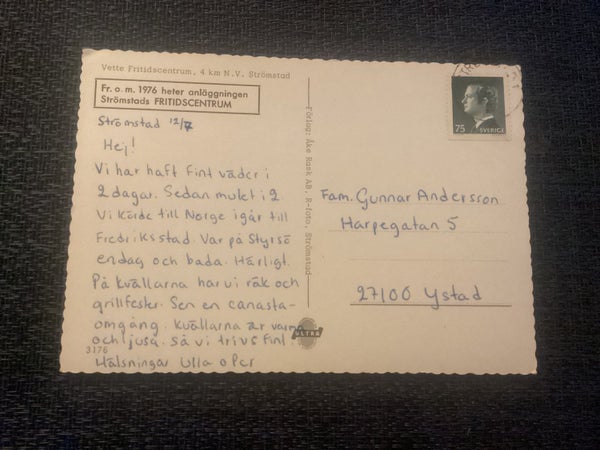 Vette Fritidscentrum, 4 km N.V. Strömstad
Fr. o. m. 1976 heter anläggningen
Strömstads FRITIDSCENTRUM
Strömstad 12/7
Hej!
Vi har haft fint väder i
2 dagar. Sedan mulet i 2.
Vi körde till Norge igår till
Fredriksstad. Var på Styrsö
endag och bada. Härligt.
På kvällarna har vi räk och
grillfester. Sen en canasta-
omgång. Kvällarna är varma
och ljusa. så vi trivs fint.
3176
Hälsningar Ulla o Per
Förlag: Åke Rask AB, R-foto, Strömstad
ULTRA
75 SVERIGE
Fam. Gunnar Andersson
Harpegatan 5
27100 Ystad